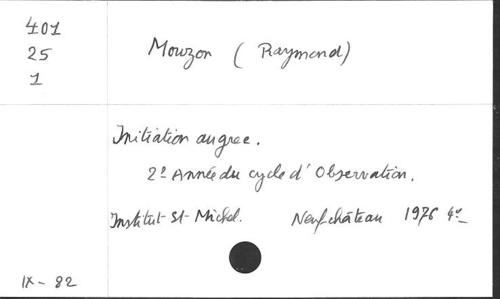 401
25
1
Mouzon (Raymond)
Initiation au grec.
2e Année du cycle d'Observation.
Institut St-Michel. Neufchâteau 1976 4°
IX - 82